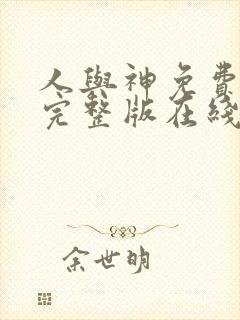 人與神免費
完整版在綫
余世明